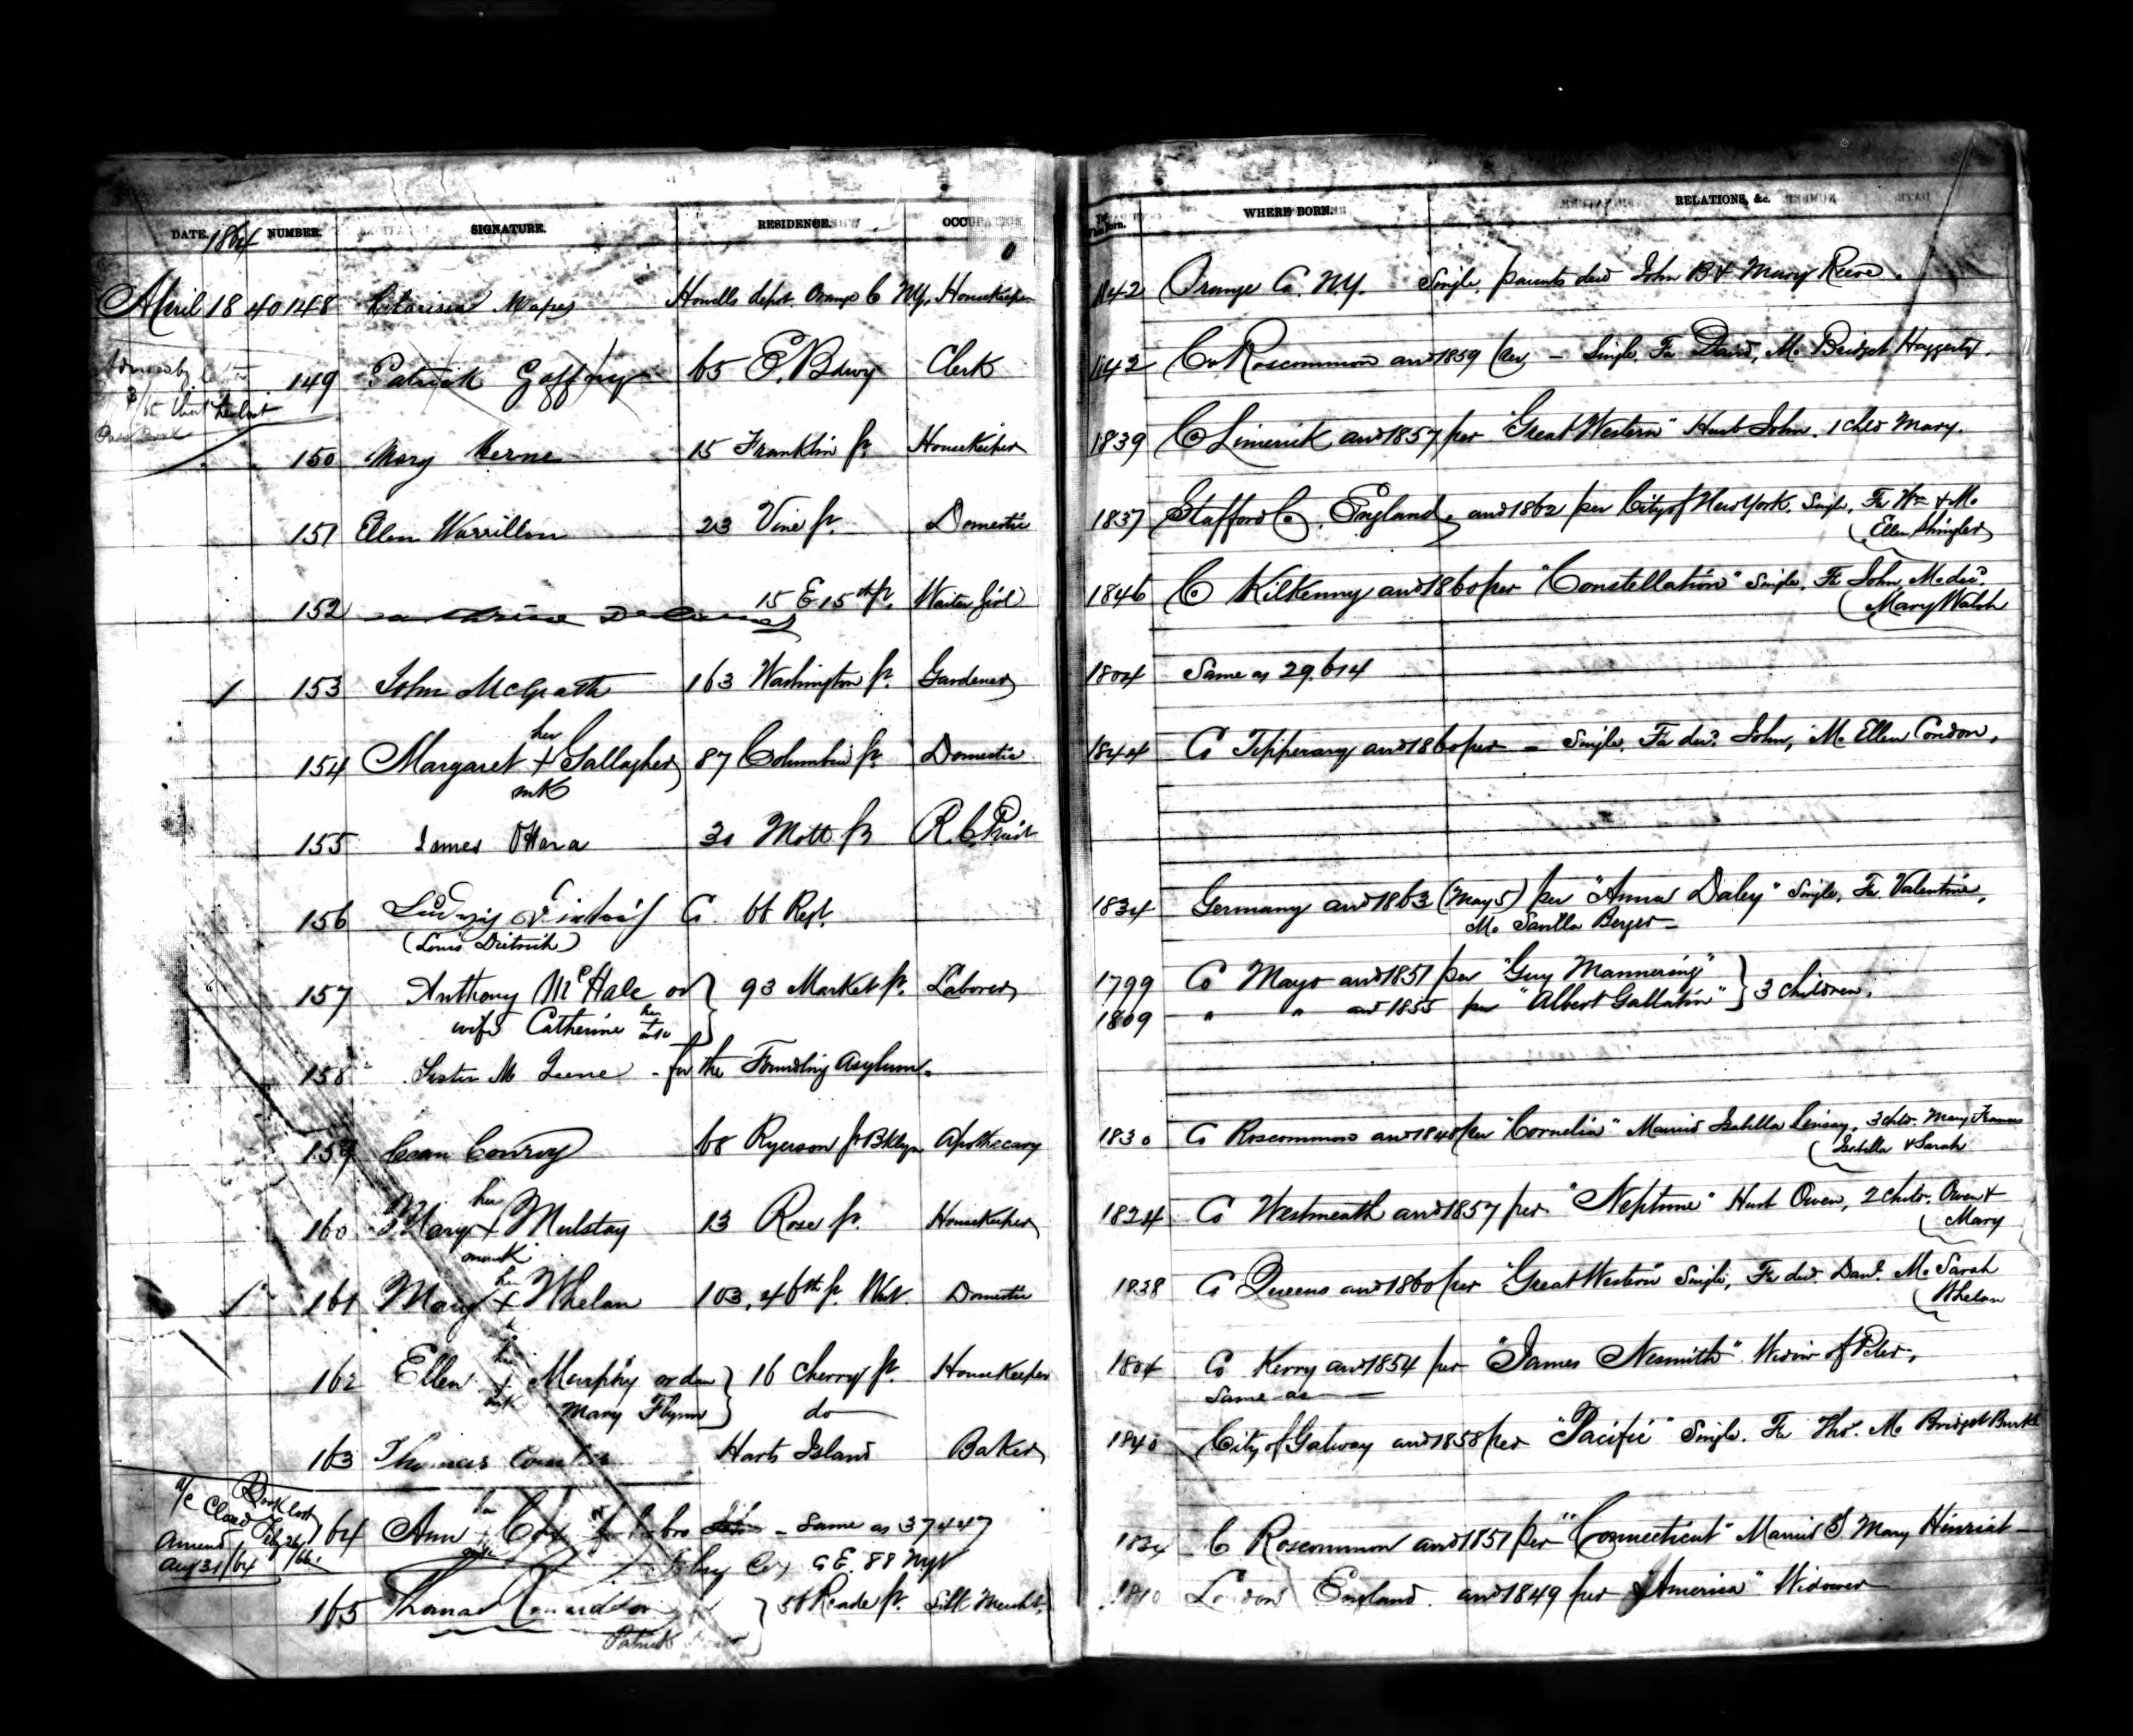 DATE. 1864 NUMBER. SIGNATURE. RESIDENCE. OCCUPATION. When Born. WHERE BORN. RELATIONS, &c.
April 18 40148 Mapes Howells depot. Orange C NY. Housekeeper 1842 Orange Co. N.Y. Single, parents ded John B & Mary Reeve.
149 Patrick Gaffney 65 E. Bdwy Clerk 1842 Co Roscommon arrd 1859 per — Single, Fa David, Mo Bridget Haggerty.
Pass Book
150 Mary Kerne 15 Franklin st. Housekeeper 1839 Co Limerick arrd 1857 per "Great Western" Husb John. 1 chld Mary.
151 Ellen Warrillow 23 Vine st. Domestic 1837 Stafford Co, England, arrd 1862 per City of New York. Single, Fa Wm & Mo
(Ellen Shingler)
152 15 E 15th st. Waiter Girl 1846 Co Kilkenny arrd 1860 per "Constellation" Single. Fa John, Mo decd.
(Mary Walsh
1 153 John McGrath 163 Washington st. Gardener 1804 Same as 29,614
her
154 Margaret + Gallagher 87 Columbia st. Domestic 1844 Co Tipperary arrd 1860 per — Single, Fa decd. John, Mo Ellen Condon.
mk
155 James OHara 31 Mott st R. C. Priest
156 Ludwig Co. 66 Regt. 1834 Germany arrd 1863 (May 5) per "Anna Daley" Single, Fa Valentine,
(Louis Dietrich) Mo Savilla Berger —
157 Anthony McHale or } 93 Market st. Laborer 1799 Co Mayo arrd 1851 per "Guy Mannering" } 3 children.
wife Catherine her + mk 1809 " " arrd 1855 per "Albert Gallatin"
158 Sister M Irene - for the Foundling Asylum.
159 Conroy 68 Ryerson st Bklyn Apothecary 1830 Co Roscommon arrd 1848 per "Cornelia" Married Isabella Linsay, 3 chld. Mary Frances
(Isabella & Sarah
her
160 Mary + Mulstay 13 Rose st. Housekeeper 1824 Co Westmeath arrd 1857 per "Neptune" Husb Owen, 2 chld. Owen &
mark (Mary
her
1 161 Mary + Whelan 103, 46th st. West. Domestic 1838 Co Queens arrd 1860 per "Great Western" Single, Fa decd. Danl. Mo Sarah
(Whelan
her
162 Ellen + Murphy or dau } 16 Cherry st. Housekeeper 1804 Co Kerry arrd 1854 per "James Nesmith". Widow of Peter.
mk Mary Flynn do Same as —
163 Thomas Harts Island Baker 1840 City of Galway arrd 1858 per "Pacific" Single. Fa Thos. Mo Bridget Burke
a/c Closed Book lost
164 Ann + Cox — Same as 37447 1824 Co Roscommon arrd 1851 per "Connecticut" Married
Amend Aug 31/64
165 Thomas } 56 Reade st. Silk Mercht. 1810 London England. arrd 1849 per "America" Widower
Patrick